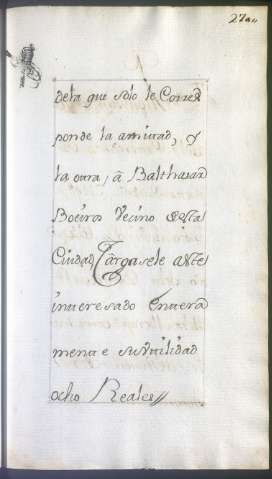 27„
dela que solo le Corres
ponde la amitad, y
la otra, â Balthasar
Boeira Vecino desta
Ciudad Cargasele a este
interesado entera
mente su utilidad
ocho Reales